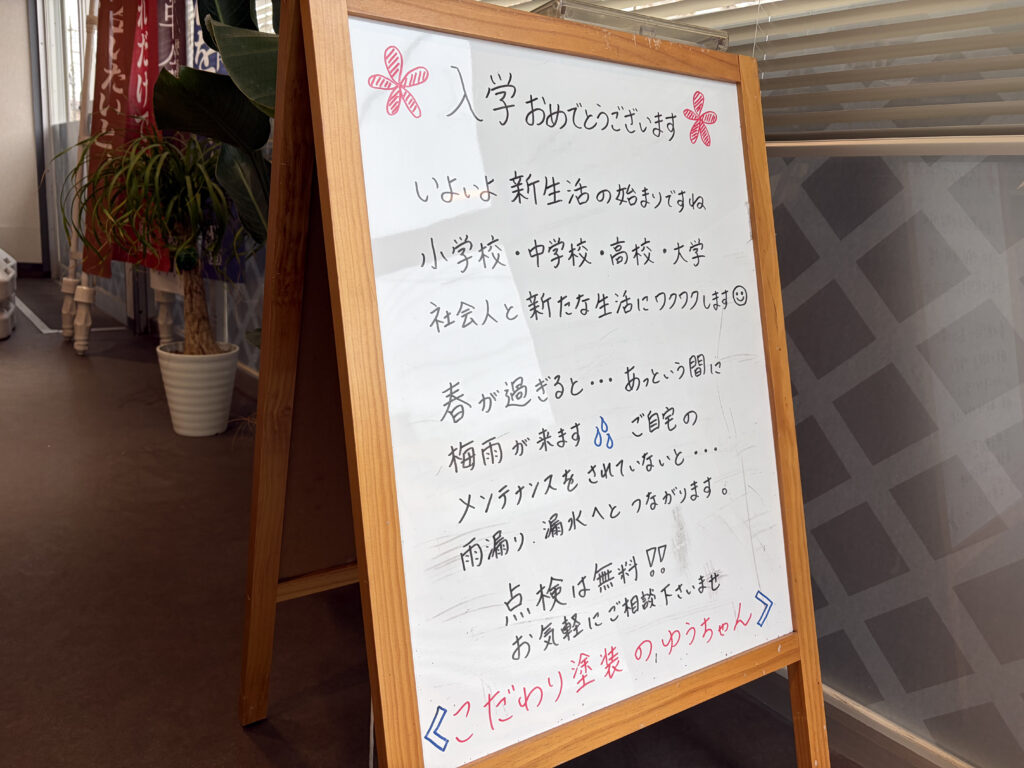 入学おめでとうございます
いよいよ新生活の始まりですね
小学校・中学校・高校・大学
社会人と新たな生活にワクワクします
春が過ぎると・・・あっという間に
梅雨が来ます ご自宅の
メンテナンスをされていないと・・・
雨漏り、漏水へとつながります。
点検は無料!!
お気軽にご相談下さいませ
《こだわり塗装のゆうちゃん》